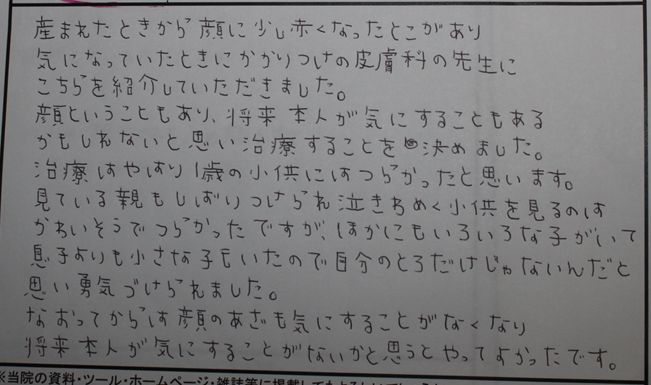 産まれたときから顔に少し赤くなったとこがあり
気になっていたときにかかりつけの皮膚科の先生に
こちらを紹介していただきました。
顔ということもあり、将来本人が気にすることもある
かもしれないと思い治療することを決めました。
治療はやはり1歳の小供にはつらかったと思います。
見ている親もしばりつけられ泣きわめく小供を見るのは
かわいそうでつらかったですが、ほかにもいろいろな子がいて
息子よりも小さな子もいたので自分のとろだけじゃないんだと
思い勇気づけられました。
なおってからは顔のあざも気にすることがなくなり
将来本人が気にすることがないかと思うとやってよかったです。
※当院の資料・ツール・ホームページ・雑誌等に掲載しても